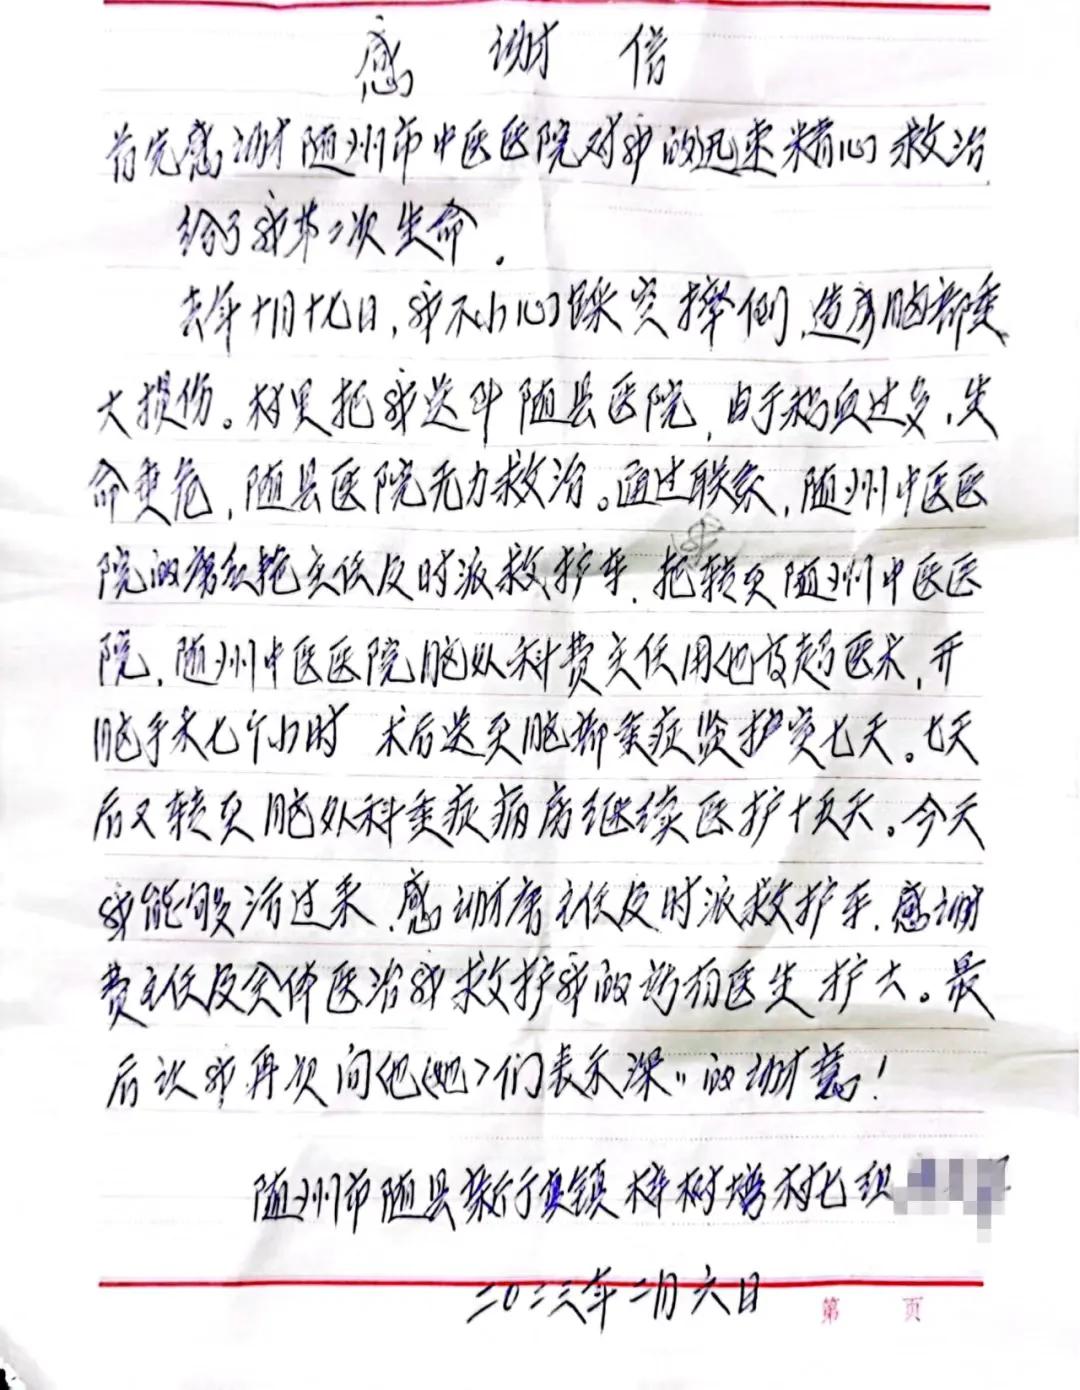 感谢信
首先感谢随州市中医医院对我的迅速精心救治
给了我第二次生命。
去年十月十九日，我不小心踩空摔倒，造成脑部重
大损伤。村里把我送到随县医院，由于 血过多，生
命垂危，随县医院无力救治。通过联系，随州中医医
我
院的 主任及时派救护车，把转页随州中医医
院，随州中医医院脑外科费主任用他高超医术，开
脑手术七个小时 术后送页脑部重症监护室七天。七天
后又转页脑外科重症病房继续医护十页天。今天
我能够活过来，感谢 主任及时派救护车，感谢
费主任及全体医治我救护我的 医生护士。最
后让我再次向他（她）们表示深〃的谢意！
随州市随县 镇 树 村七组
二〇二三年二月六日
第 页